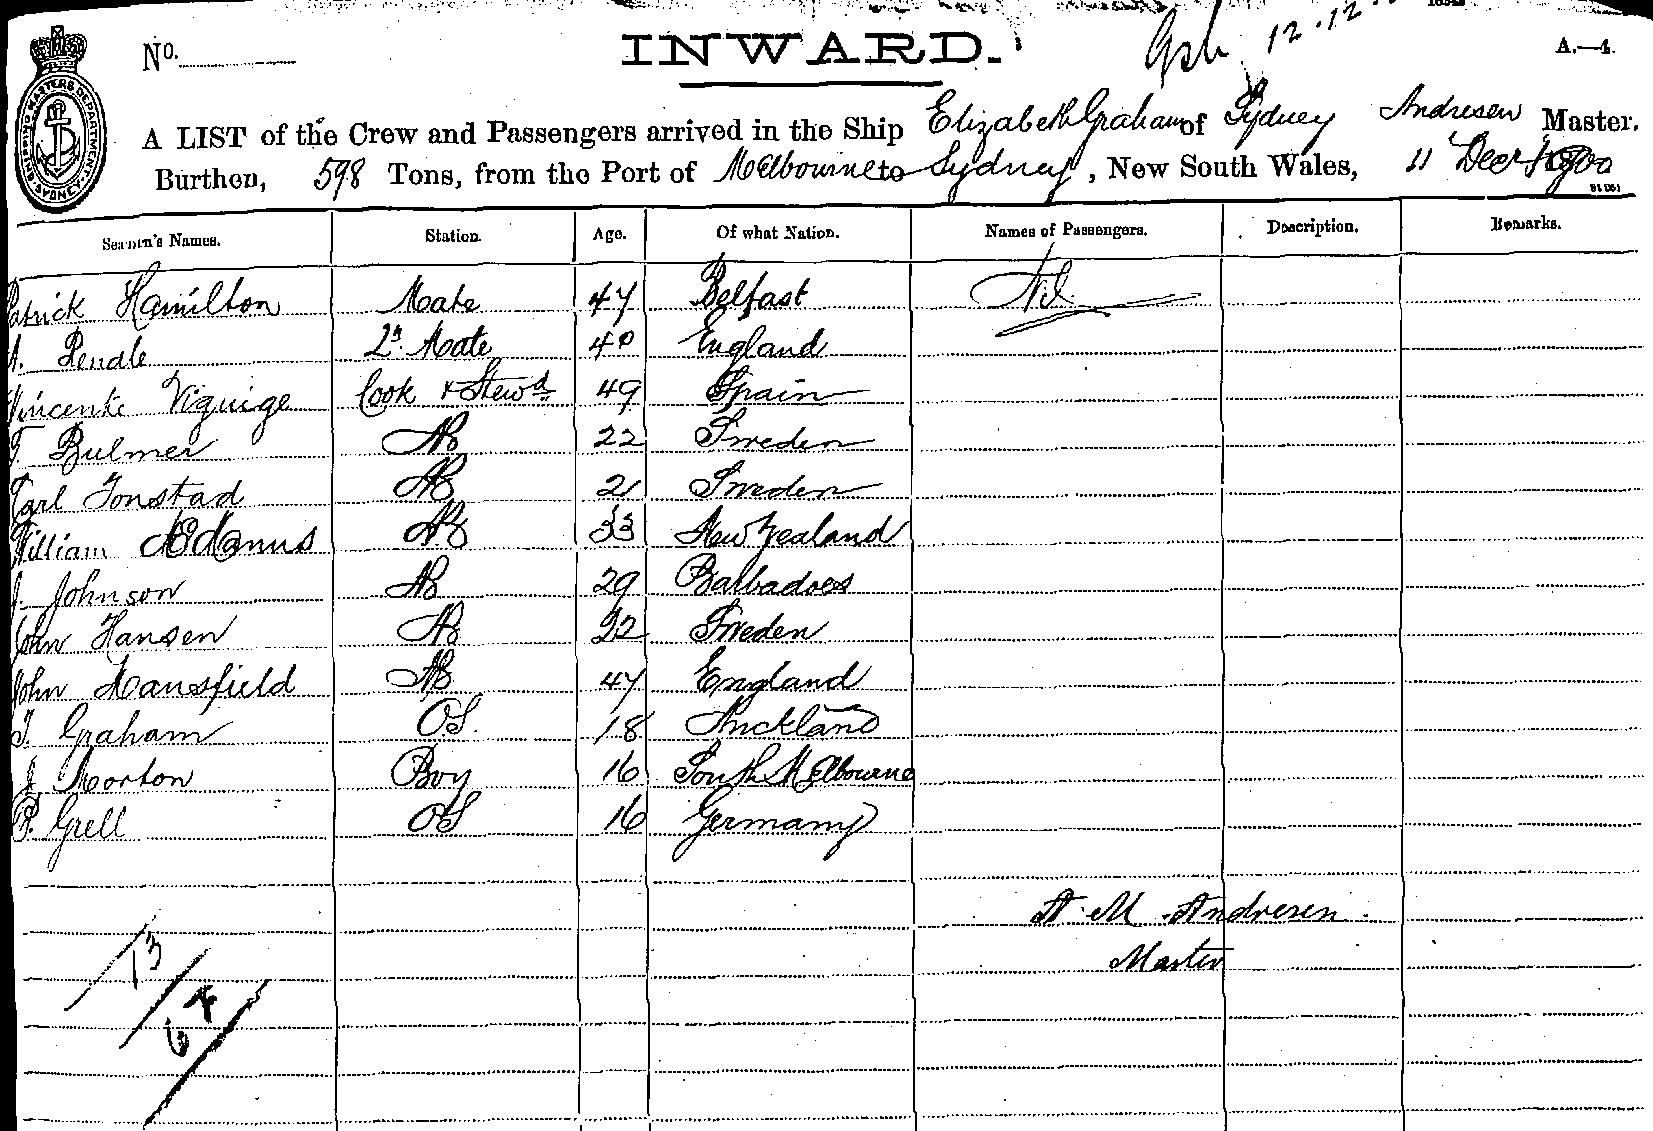 No. INWARD. 12.12. A.—4.
A LIST of the Crew and Passengers arrived in the Ship Elizabeth Graham of Sydney Andresen Master.
Burthen, 598 Tons, from the Port of Melbourne to Sydney, New South Wales, 11 Decr 1900
Seamen's Names. Station. Age. Of what Nation. Names of Passengers. Description. Remarks.
Patrick Hamilton Mate 47 Belfast Nil
A. Rendle 2n. Mate 40 England
Vincente Viguige Cook & Stewd 49 Spain
Bulmer AB 22 Sweden
Carl Tonstad AB 21 Sweden
William AB 33 New Zealand
J. Johnson AB 29 Barbadoes
John Hansen AB 22 Sweden
John Mansfield AB 47 England
T. Graham OS. 18 Auckland
J. Morton Boy 16 South Melbourne
P. Grell OS 16 Germany
A. M. Andresen.
Master
13
64